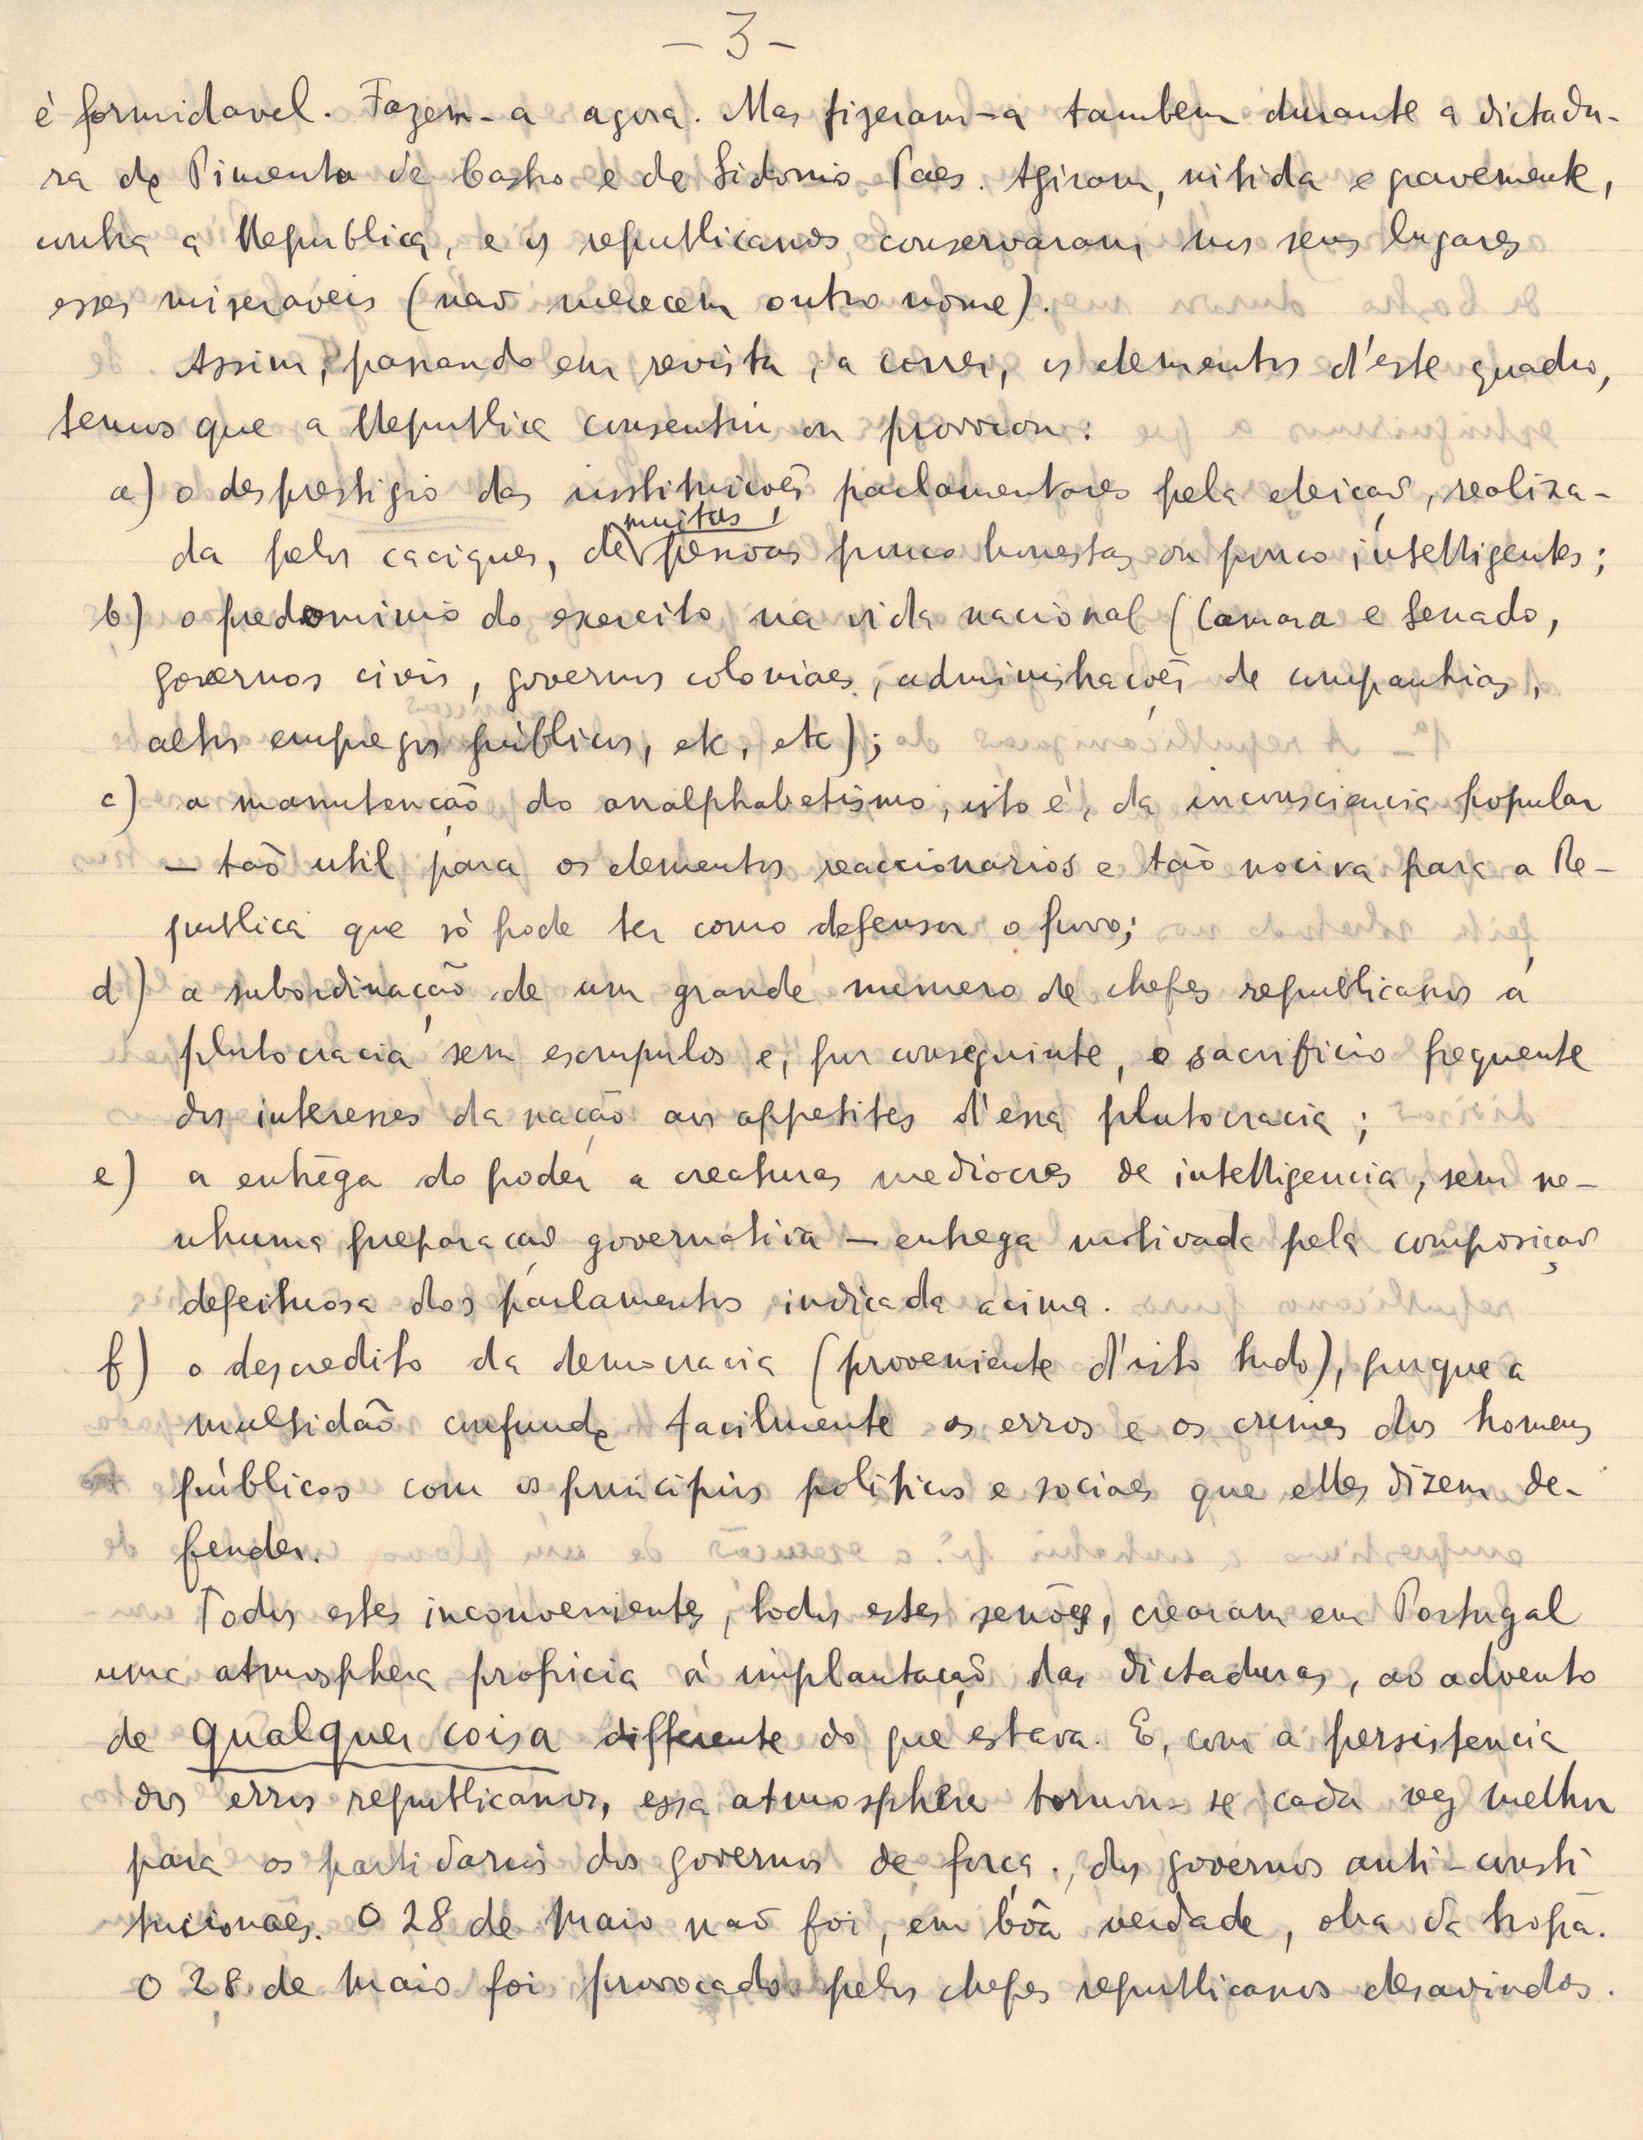 – 3 –
é formidavel. Fazem-a agora. Mas fizeram-a tambem durante a dictadu-
ra de Pimenta de Castro e de Sidonio Paes. Agiram, nitida e gravemente,
contra a Republica, e os republicanos conservaram nos seus lugares
esses miseraveis (não merecem outro nome).
Assim, passando em revista, a correr, os elementos d'este quadro,
temos que a Republica consentiu ou provocou:
a) o desprestigio das instituicões parlamentares pela eleição, realiza-
da pelos caciques, de muitas pessoas pouco honestas ou pouco intelligentes;
b) o predominio do exercito na vida nacional (Camara e Senado,
governos civis, governos coloniaes, administrações de companhias,
altos empregos públicos, etc, etc);
c) a manutenção do analphabetismo, isto é, da inconsciencia popular
– tão util para os elementos reaccionarios e tão nociva para a Re-
publica que só pode ter como defensor o povo;
d) a subordinação de um grande numero de chefes republicanos á
plutocracia sem escrupulos e, por conseguinte, o sacrificio frequente
dos interesses da nação aos appetites d'essa plutocracia;
e) a entrega do poder a creaturas mediocres de intelligencia, sem ne-
nhuma preparação governativa – entrega motivada pela composição
defeituosa dos parlamentos indicada acima.
f) o descredito da democracia (proveniente d'isto tudo), porque a
multidão confunde facilmente os erros e os crimes dos homens
públicos com os principios politicos e sociaes que elles dizem de-
fender.
Todos estes inconvenientes, todos estes senões, crearam em Portugal
uma atmosphera propicia á implantação das dictaduras, ao advento
de qualquer coisa differente do que estava. E, com a persistencia
dos erros republicanos, essa atmosphera tornou-se cada vez melhor
para os partidarios dos governos de força, dos governos anti-consti
tucionaes. O 28 de Maio não foi, em bôa verdade, obra da tropa.
O 28 de Maio foi provocado pelos chefes republicanos desavindos.